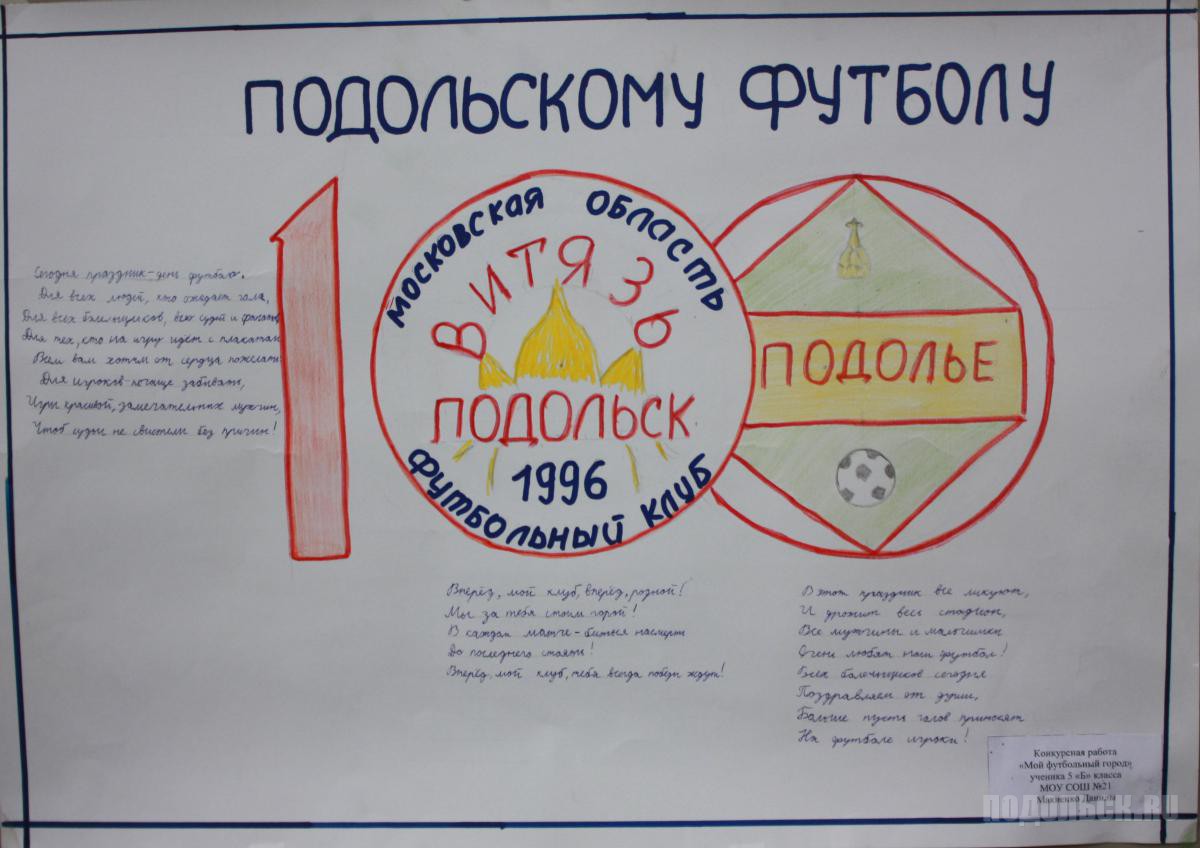 ПОДОЛЬСКОМУ ФУТБОЛУ
МОСКОВСКАЯ ОБЛАСТЬ
ВИТЯЗЬ
ПОДОЛЬСК
1996
ФУТБОЛЬНЫЙ КЛУБ
ПОДОЛЬЕ
Сегодня праздник-день футбола.
Для всех людей, кто ожидает гола,
Для всех болельщиков, всех судей и
Для тех, кто на игру идёт с плакатам
Всем вам хотим от сердца пожелать
Для игроков-почаще забивать,
Игры красивой, замечательных мужчин,
Чтоб судьи не свистели без причин!
Вперёд, мой клуб, вперёд, родной!
Мы за тебя стоим горой!
В каждом матче-биться насмерть
До последнего стоять!
Вперёд, мой клуб, тебя всегда победы ждут!
В этот праздник все ликуют,
И дрожит весь стадион,
Все мужчины и мальчишки
Очень любят наш футбол!
Всех болельщиков сегодня
Поздравляем от души,
Больше пусть голов приносят
На футболе игроки!
Конкурсная работа
«Мой футбольный город»
ученика 5 «Б» класса
МОУ СОШ №21
ПОДОЛЬСК.RU